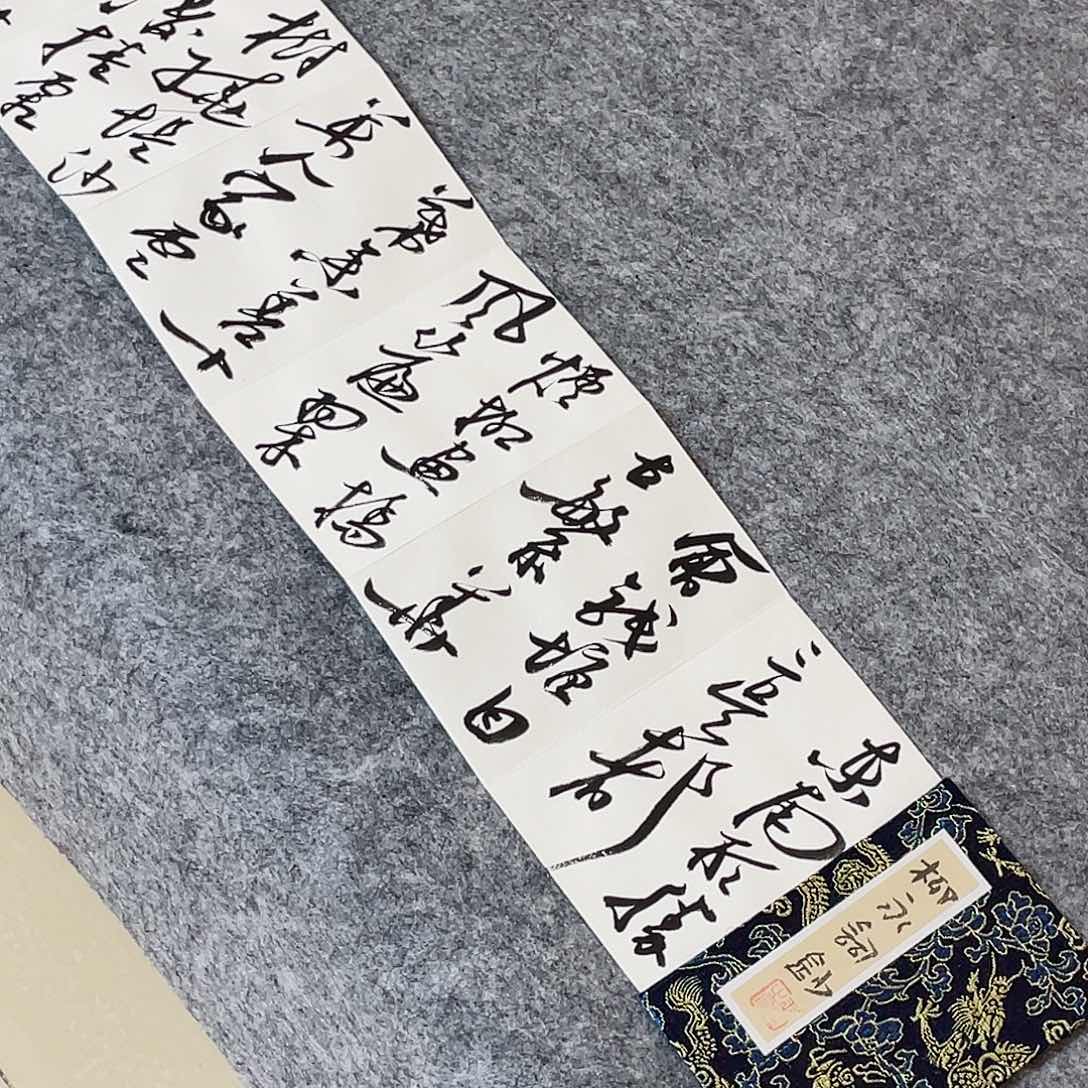 柳永詞鈔
東南形勝
三吴都
會錢塘自
古繁華
煙柳畫橋
風簾翠
幕參差十
萬人家雲
樹繞堤沙
濤捲霜